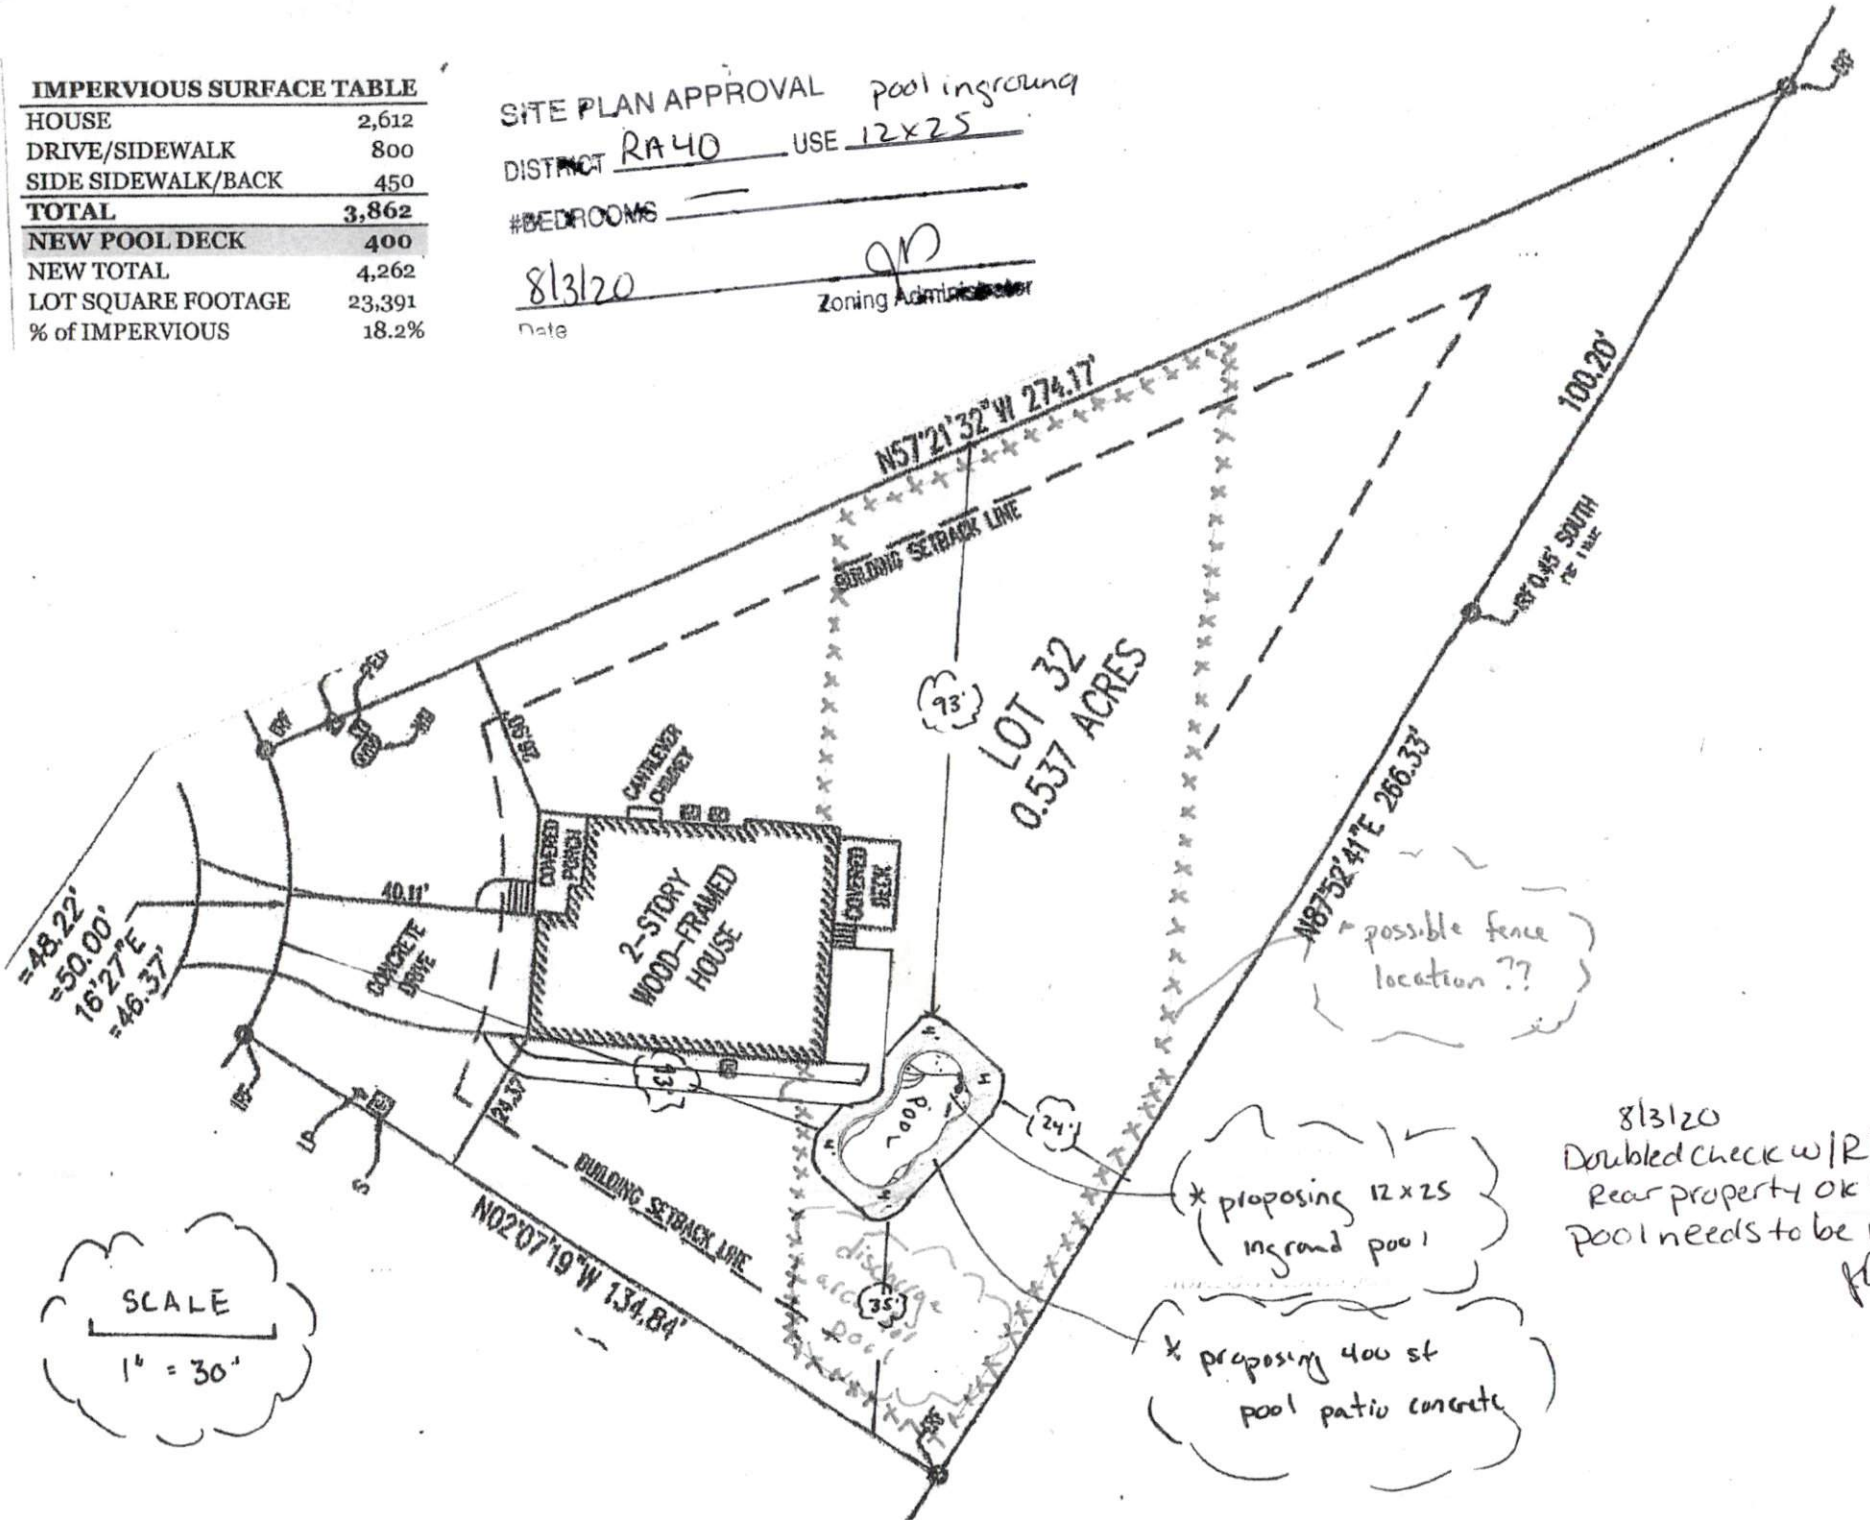 IMPERVIOUS SURFACE TABLE
HOUSE 2,612
DRIVE/SIDEWALK 800
SIDE SIDEWALK/BACK 450
TOTAL 3,862
NEW POOL DECK 400
NEW TOTAL 4,262
LOT SQUARE FOOTAGE 23,391
% of IMPERVIOUS 18.2%
SITE PLAN APPROVAL pool inground
DISTRICT RA40 USE 12x25
#BEDROOMS —
8/3/20
Date
Zoning Administrator
N57°21'32"W 274.17'
BUILDING SETBACK LINE
100.20'
0.45' SOUTH
OF LINE
93'
LOT 32
0.537 ACRES
N87°52'41"E 266.33'
PED
CANTILEVER
CHIMNEY
COVERED
PORCH
2-STORY
WOOD-FRAMED
HOUSE
COVERED
DECK
40.11'
CONCRETE
DRIVE
=48.22'
=50.00'
16'27"E
=46.37'
* possible fence
location ??
IRF
LP
S
24.37
4' 4' 4' 4'
POOL
24'
35'
discharge
pool
BUILDING SETBACK LINE
N02°07'19"W 134.84'
* proposing 12x25
inground pool
* proposing 400 sf
pool patio concrete
8/3/20
Doubled check w/R
Rear property ok
pool needs to be
SCALE
1" = 30"